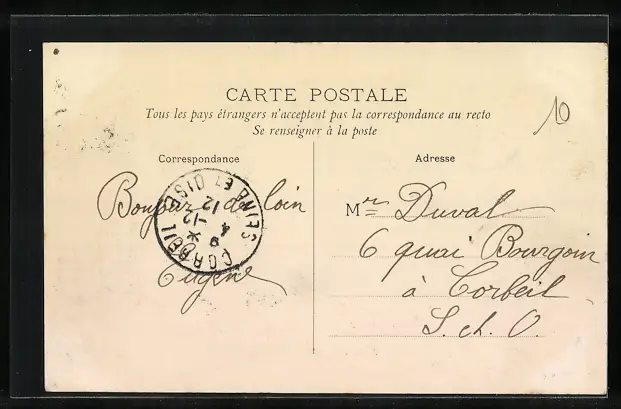 CARTE POSTALE
Tous les pays étrangers n'acceptent pas la correspondance au recto
Se renseigner à la poste
10
Correspondance
Bonjour de loin
Eugène
CORBEIL
SEINE ET OISE
12
12
4
9
Adresse
Mr Duval
6 quai Bourgoin
à Corbeil
S. et. O.